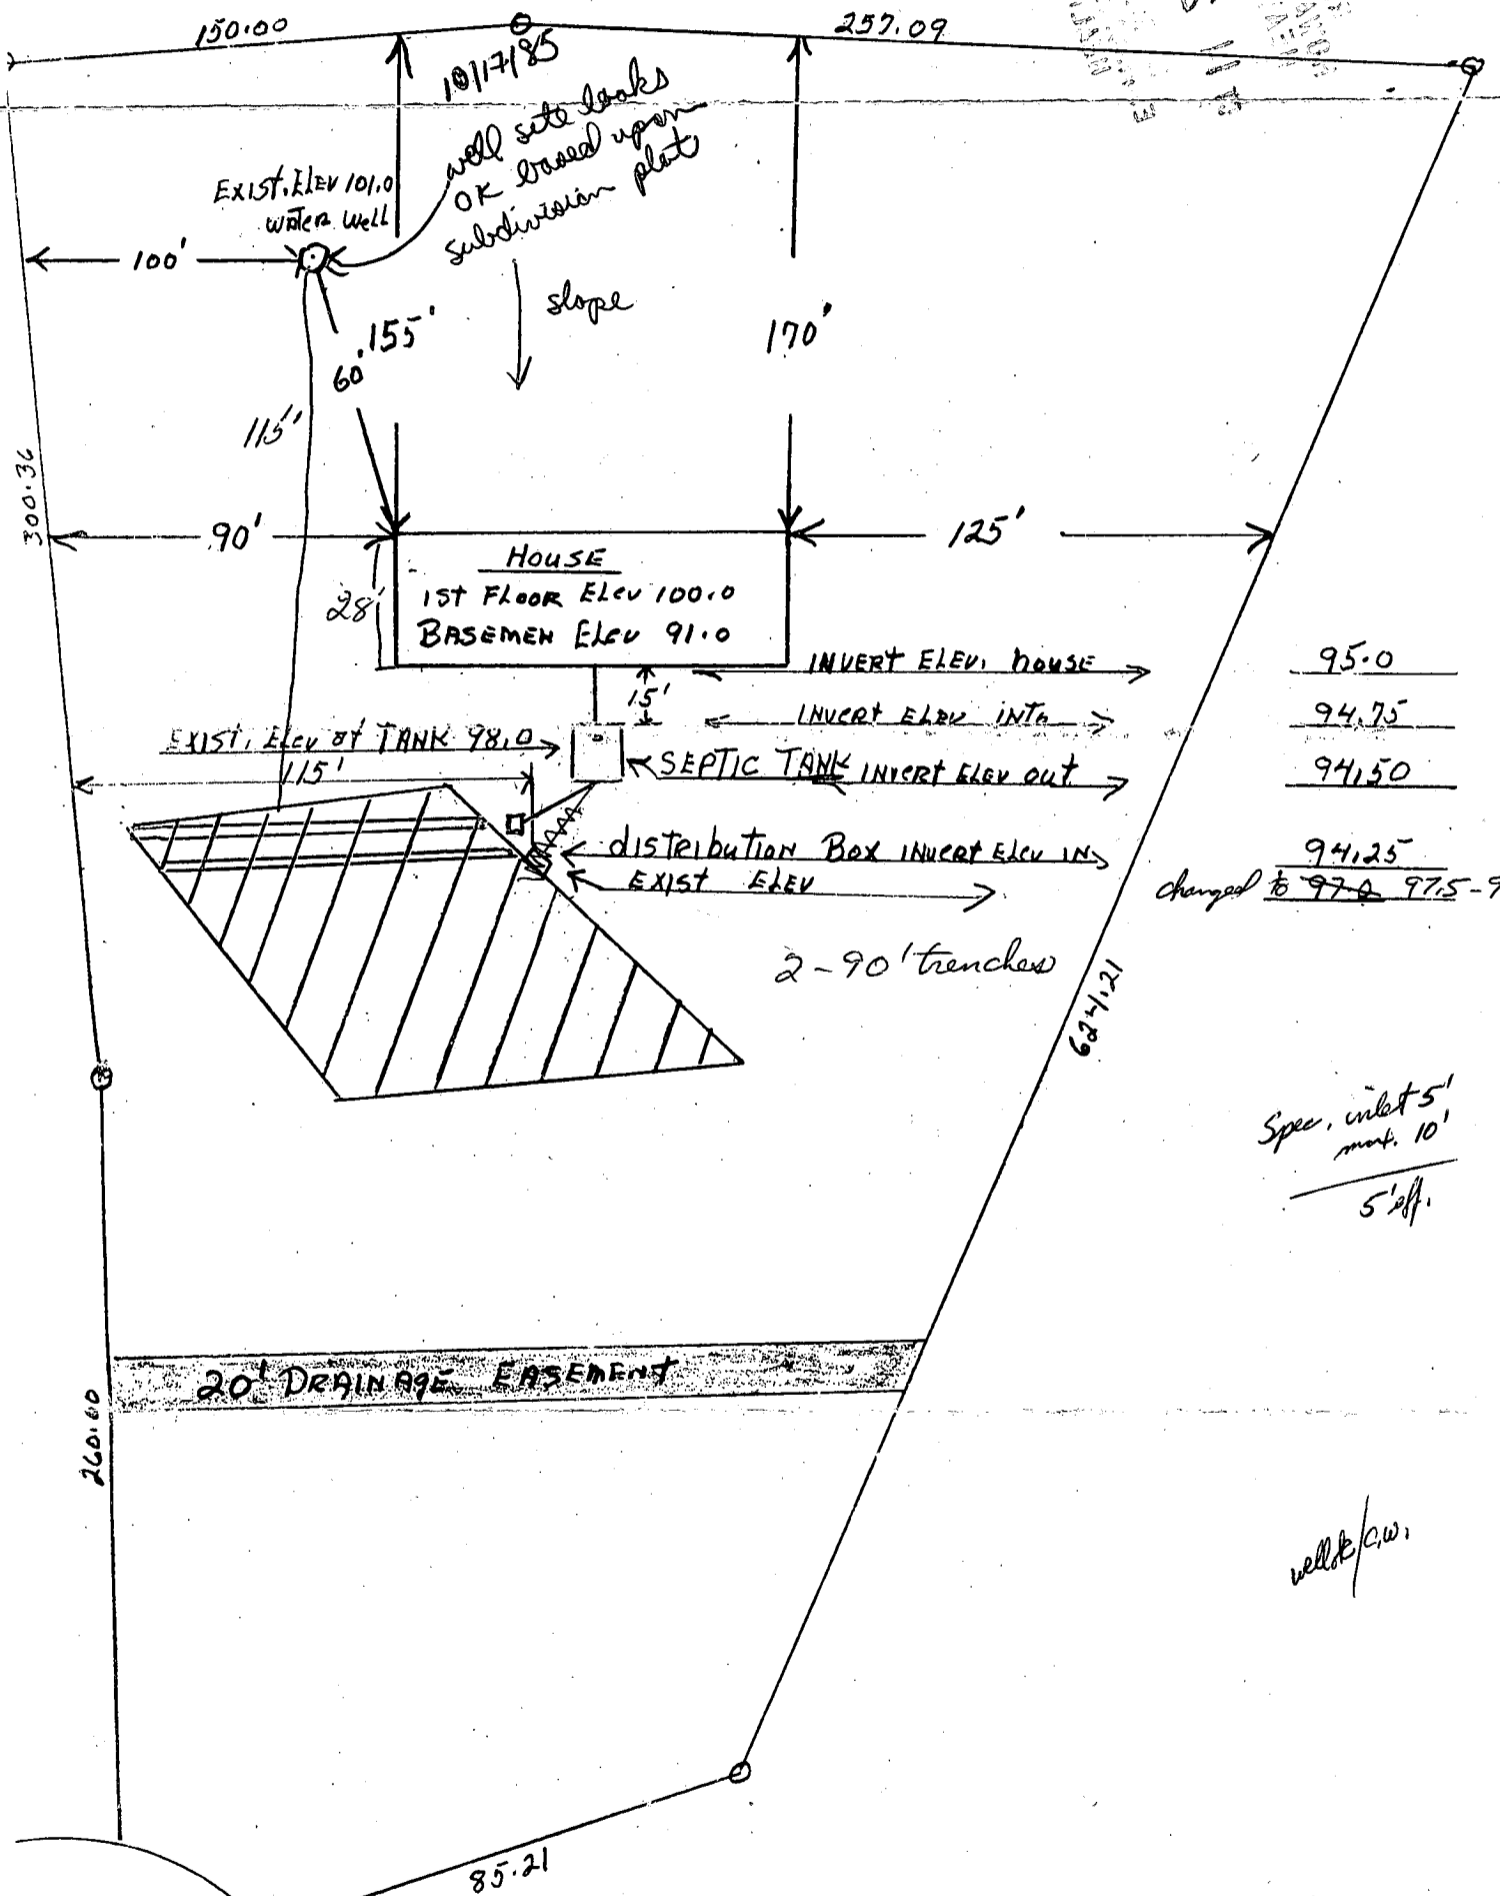 150.00
257.09
10/17/85
well site looks
OK based upon
subdivision plat
EXIST. ELEV 101.0
WATER WELL
100'
slope
155'
60'
170'
115'
300.36
90'
125'
HOUSE
1ST FLOOR ELEV 100.0
BASEMEN ELEV 91.0
28'
INVERT ELEV. HOUSE 95.0
15'
INVERT ELEV INTO 94.75
EXIST. ELEV OF TANK 98.0
SEPTIC TANK INVERT ELEV OUT 94.50
115'
DISTRIBUTION BOX INVERT ELEV IN 94.25
EXIST ELEV
changed to 97.0 97.5-9
2-90' trenches
624.21
Spec. inlet 5'
max. 10'
5' eff.
20' DRAINAGE EASEMENT
260.60
well ok/C.W.
85.21